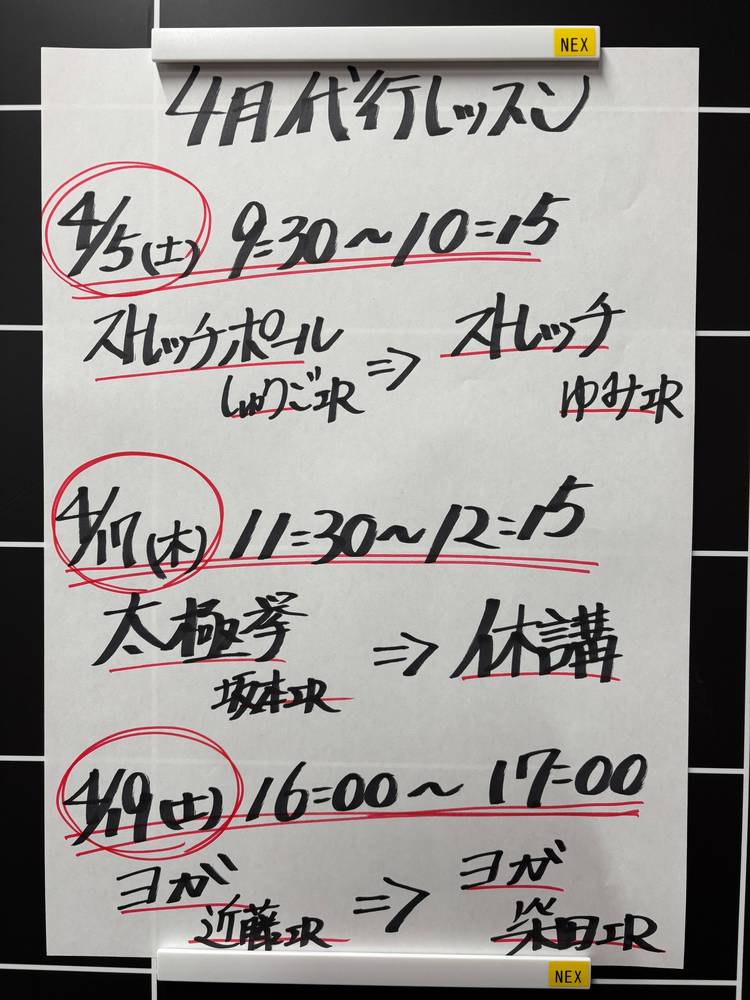 NEX
4月代行レッスン
4/5(土) 9:30〜10:15
ストレッチポール ⇒ ストレッチ
しゅりごIR ゆみIR
4/17(木) 11:30〜12:15
太極拳 ⇒ 休講
坂本IR
4/19(土) 16:00〜17:00
ヨガ ⇒ ヨガ
近藤IR 柴田IR
NEX